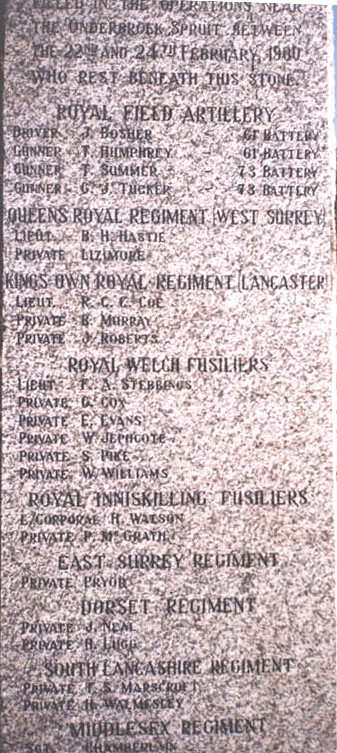 KILLED IN THE OPERATIONS NEAR
THE ONDERBROEK SPRUIT BETWEEN
THE 22ND AND 24TH FEBRUARY, 1900
WHO REST BENEATH THIS STONE.
ROYAL FIELD ARTILLERY
DRIVER J. BOSHER - 61 BATTERY
GUNNER T. HUMPHREY - 61 BATTERY
GUNNER T. SUMMER - 73 BATTERY
GUNNER G. J. TUCKER - 73 BATTERY
QUEENS ROYAL REGIMENT (WEST SURREY)
LIEUT. B. H. HASTIE
PRIVATE LIZIMORE
KINGS OWN ROYAL REGIMENT (LANCASTER)
LIEUT. R. C. C. COE
PRIVATE B. MURRAY
PRIVATE J. ROBERTS
ROYAL WELCH FUSILIERS
LIEUT. F. A. STEBBINGS
PRIVATE G. COX
PRIVATE E. EVANS
PRIVATE W. JEPHCOTE
PRIVATE S. PIKE
PRIVATE W. WILLIAMS
ROYAL INNISKILLING FUSILIERS
L/CORPORAL H. WATSON
PRIVATE P. McGRATH
EAST SURREY REGIMENT
PRIVATE PRYOR
DORSET REGIMENT
PRIVATE J. NEAL
PRIVATE H. LUGG
SOUTH LANCASHIRE REGIMENT
PRIVATE T. S. MARSCROFT
PRIVATE H. WALMESLEY
MIDDLESEX REGIMENT
SGT. CHAMBERLAIN